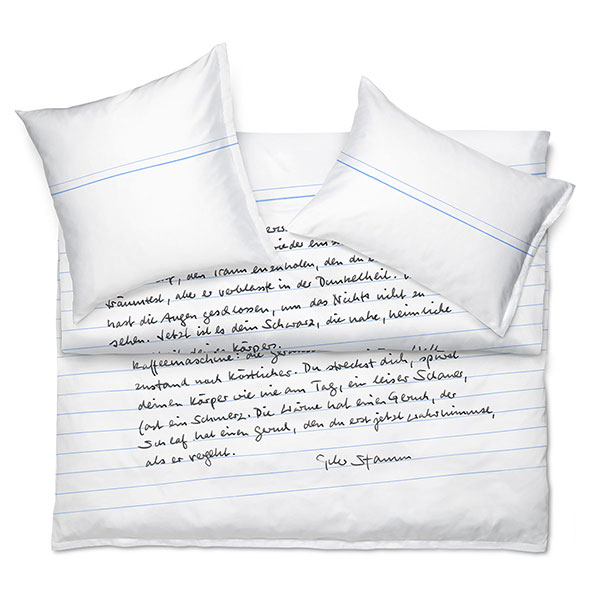 ieder ein
den Traum einzuholen, den du
träumtest, aber er verblasste in der Dunkelheit.
hast die Augen geschlossen, um das Nichts nicht zu
sehen. Jetzt ist es dein Schwarz, die nahe, heimliche
Körpers.
Kaffeemaschine: die
zustand noch köstlicher. Du streckst dich, spürst
deinen Körper wie nie am Tag, ein leiser Schauer,
fast ein Schmerz. Die Wärme hat einen Geruch, der
Schlaf hat einen Geruch, den du erst jetzt wahrnimmst,
als er vergeht.
Peter Stamm